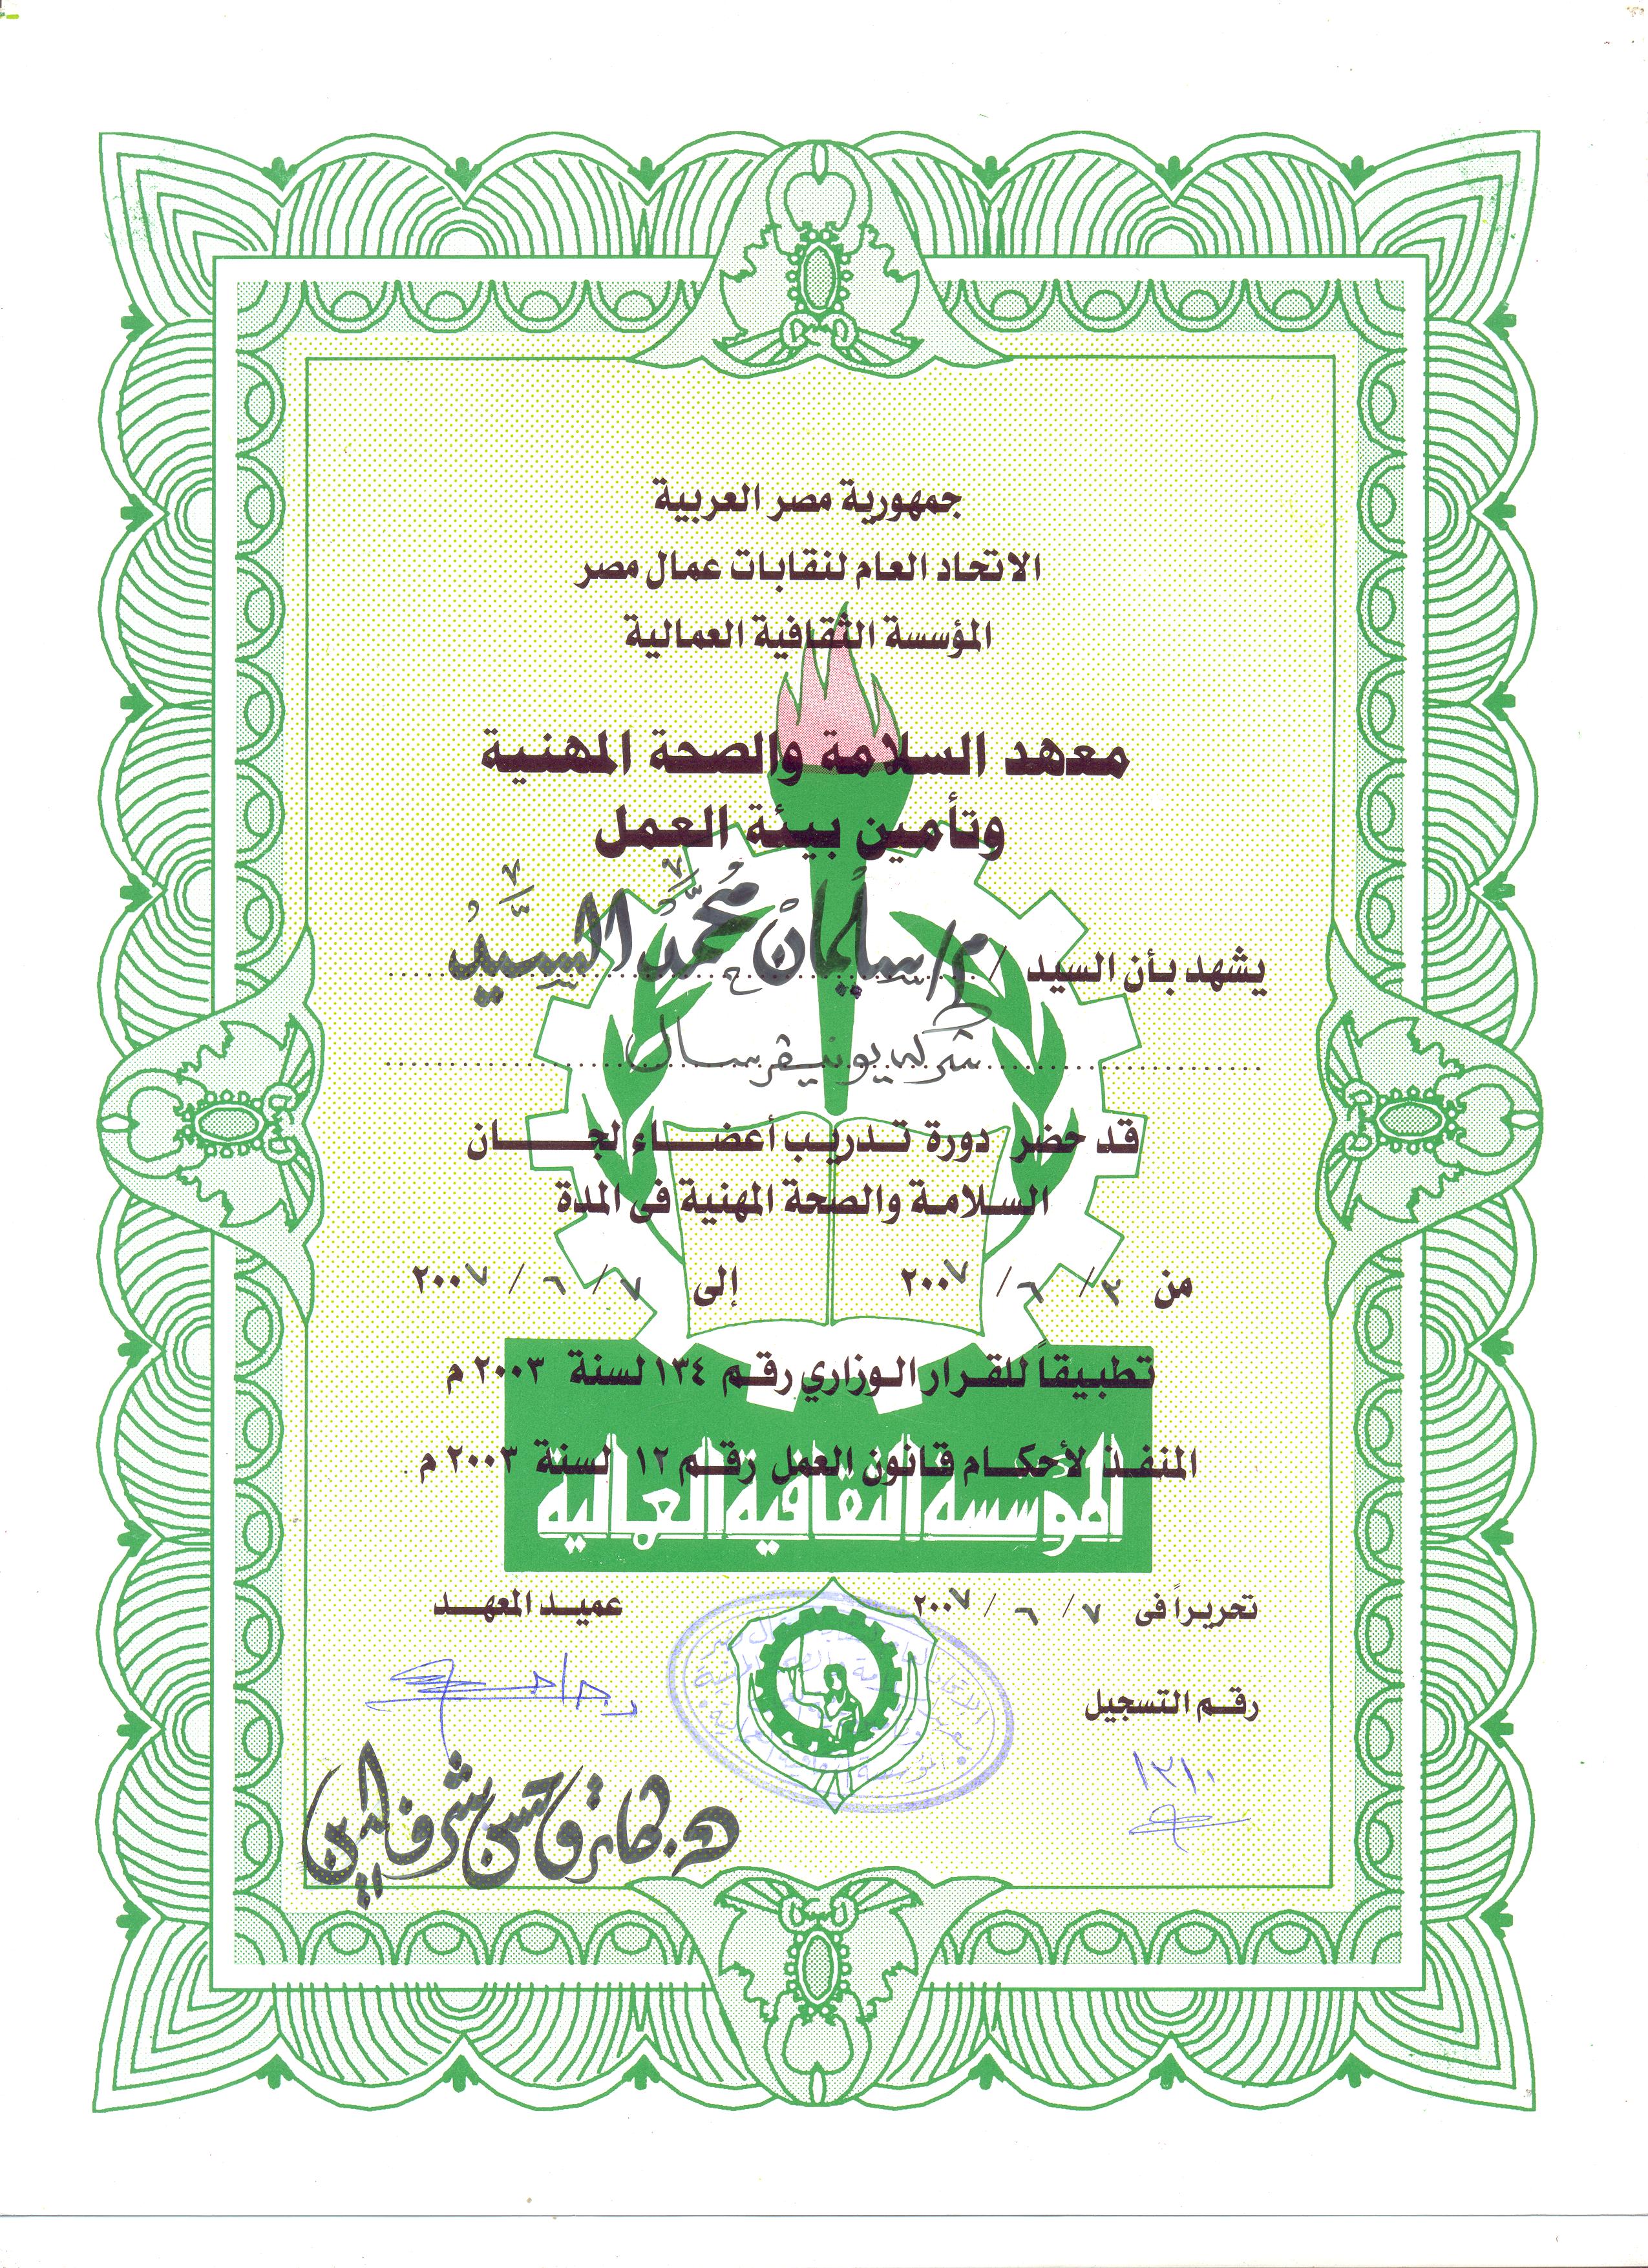 جمهورية مصر العربية
الاتحاد العام لنقابات عمال مصر
المؤسسة الثقافية العمالية
معهد السلامة والصحة المهنية
وتأمين بيئة العمل
يشهد بأن السيد / م/ سليمان محمد السيد
شركة يونيفرسال
قد حضر دورة تدريب أعضاء لجان
السلامة والصحة المهنية فى المدة
من ٣ / ٦ / ٢٠٠٧ إلى ٧ / ٦ / ٢٠٠٧
تطبيقاً للقرار الوزاري رقم ١٣٤ لسنة ٢٠٠٣ م
المنفذ لأحكام قانون العمل رقم ١٢ لسنة ٢٠٠٣ م
المؤسسة الثقافية العمالية
تحريراً فى ٧ / ٦ / ٢٠٠٧ عميد المعهد
رقم التسجيل
١٢١٠
د. طارق حسن شرف الدين